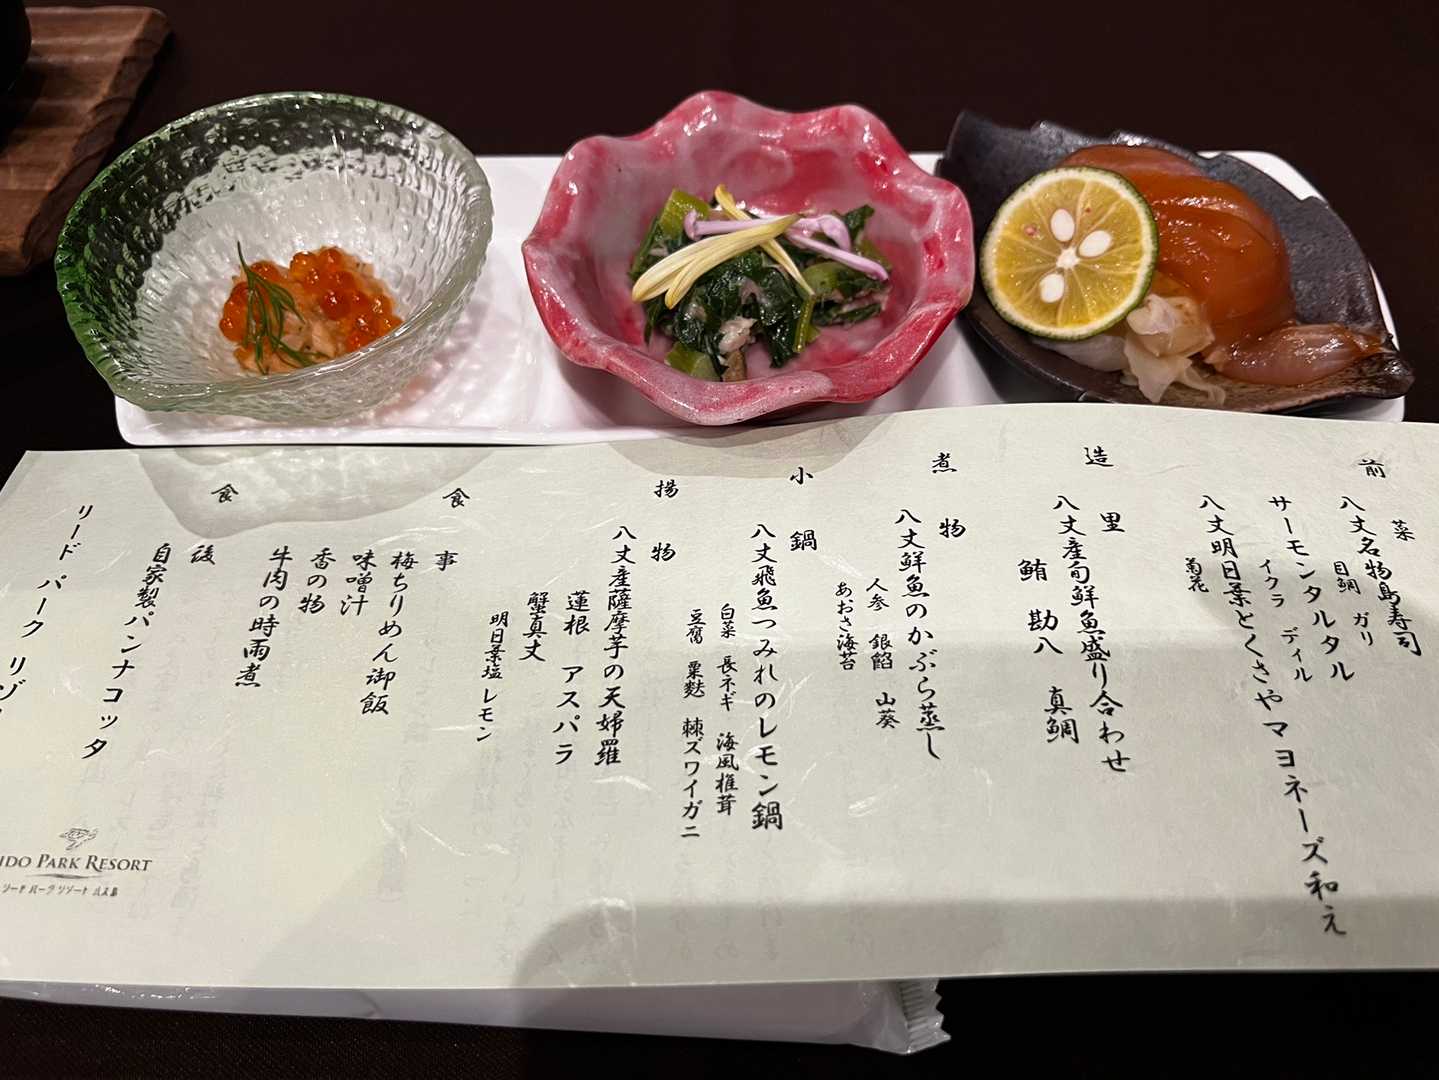 前菜
八丈名物島寿司
目鯛 ガリ
サーモンタルタル
イクラ ディル
八丈明日葉とくさやマヨネーズ和え
菊花
造里
八丈産旬鮮魚盛り合わせ
鮪 勘八 真鯛
煮物
八丈鮮魚のかぶら蒸し
人参 銀餡 山葵
あおさ海苔
小鍋
八丈飛魚つみれのレモン鍋
白菜 長ネギ 海風椎茸
豆腐 粟麩 棘ズワイガニ
揚物
八丈産薩摩芋の天婦羅
蓮根 アスパラ
蟹真丈
明日葉塩 レモン
食事
梅ちりめん御飯
味噌汁
香の物
牛肉の時雨煮
食後
自家製パンナコッタ
リード パーク リゾ
IDO PARK RESORT
リード パーク リゾート 八丈島